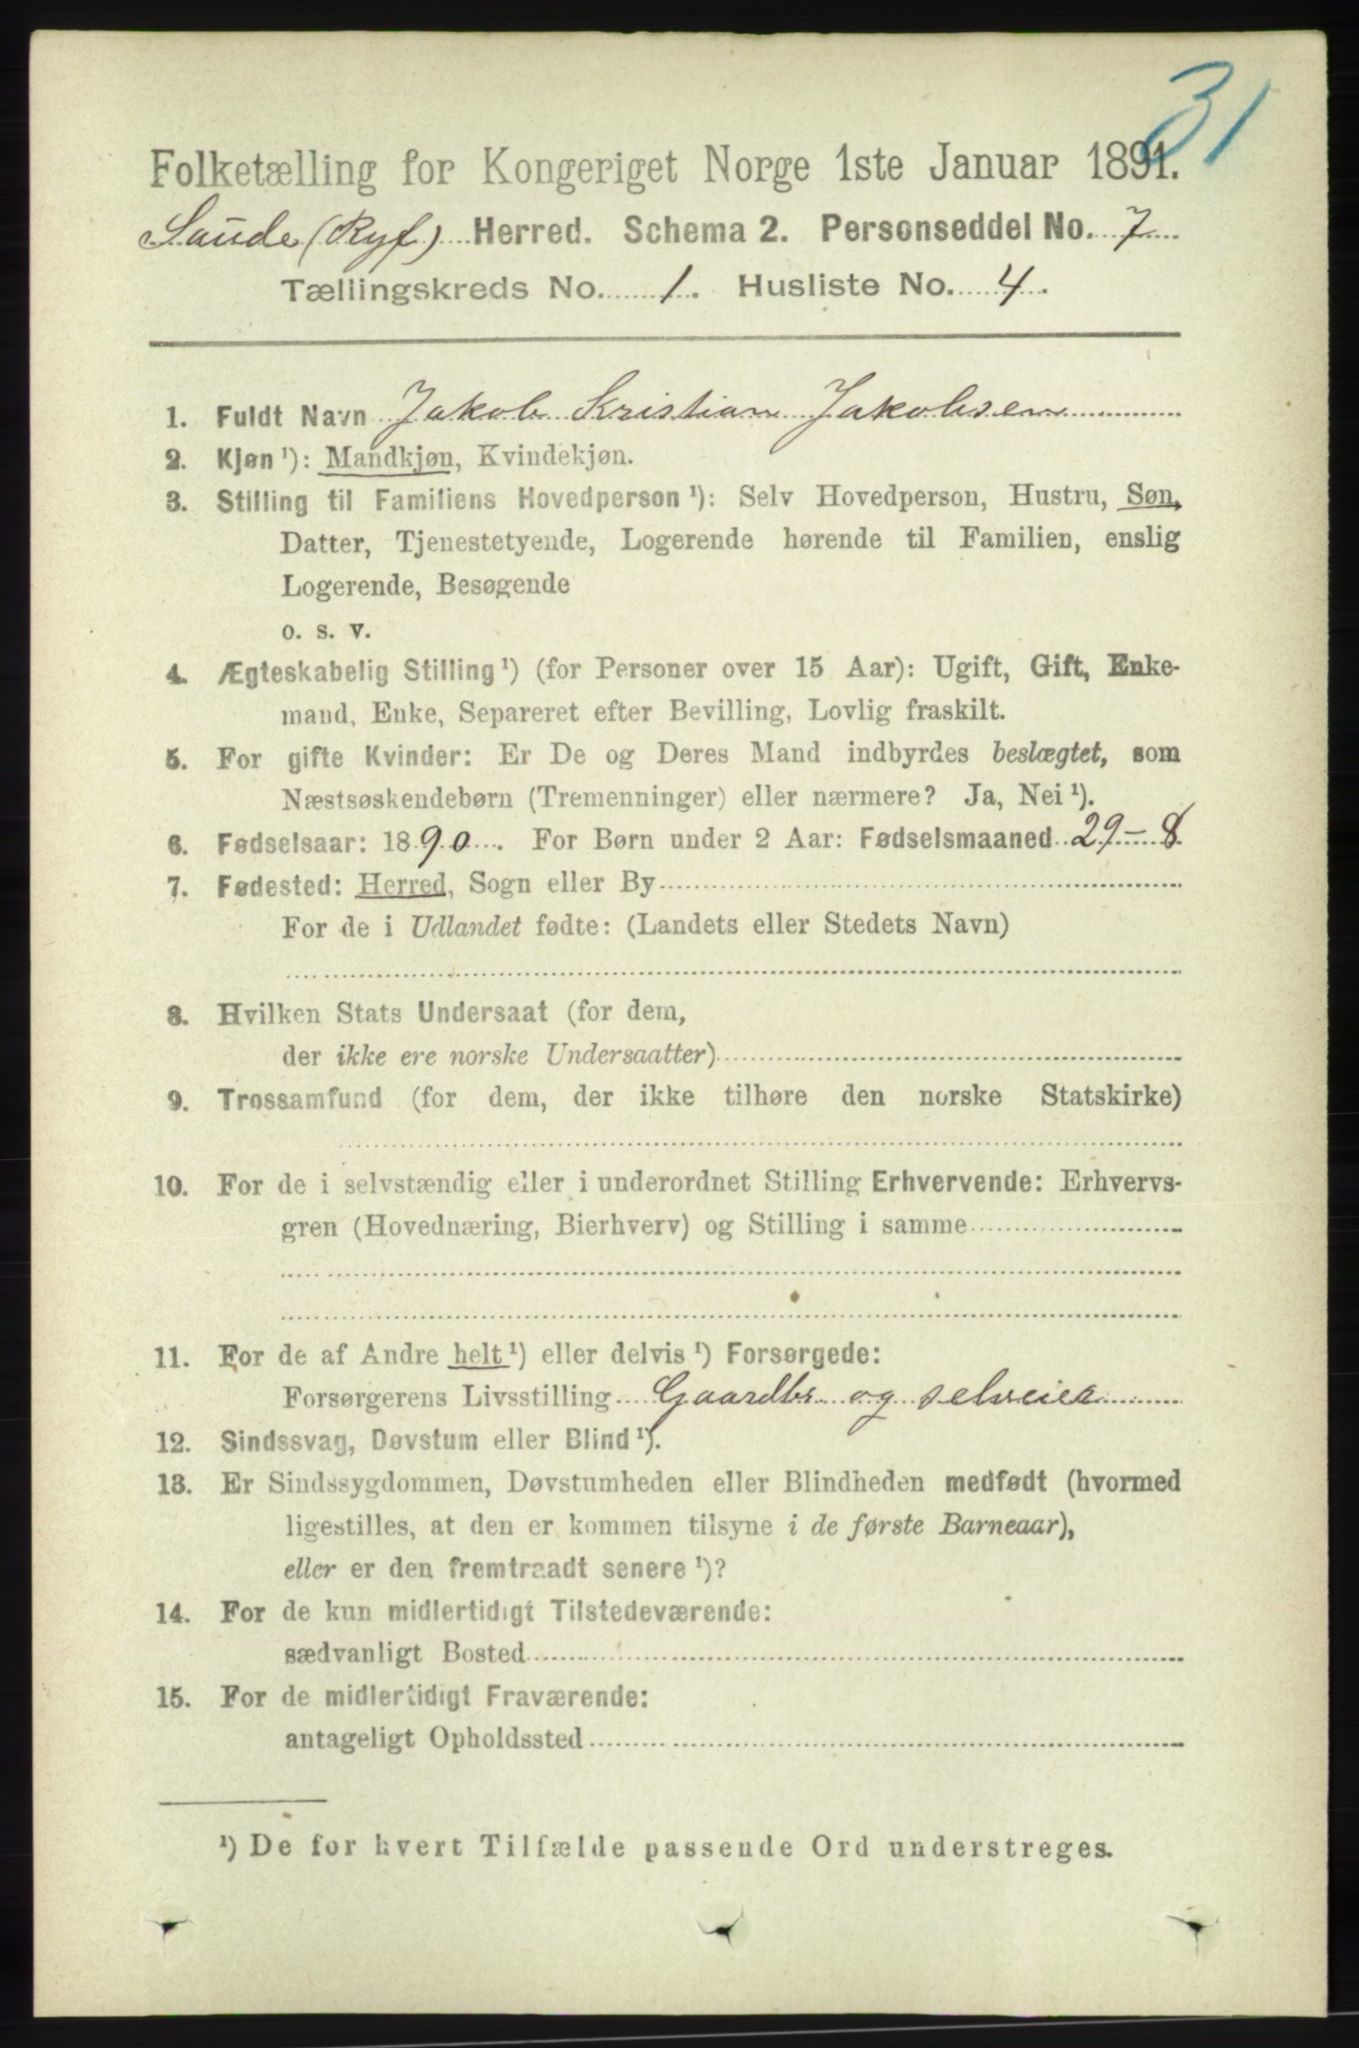 31
Folketælling for Kongeriget Norge 1ste Januar 1891.
Saude (Ryf) Herred. Schema 2. Personseddel No. 7
Tællingskreds No. 1. Husliste No. 4.
1. Fuldt Navn Jakob Kristian Jakobsen
2. Kjøn ¹): Mandkjøn, Kvindekjøn.
3. Stilling til Familiens Hovedperson ¹): Selv Hovedperson, Hustru, Søn,
Datter, Tjenestetyende, Logerende hørende til Familien, enslig
Logerende, Besøgende
o. s. v.
4. Ægteskabelig Stilling ¹) (for Personer over 15 Aar): Ugift, Gift, Enke-
mand, Enke, Separeret efter Bevilling, Lovlig fraskilt.
5. For gifte Kvinder: Er De og Deres Mand indbyrdes beslægtet, som
Næstsøskendebørn (Tremenninger) eller nærmere? Ja, Nei ¹).
6. Fødselsaar: 1890. For Børn under 2 Aar: Fødselsmaaned 29-8
7. Fødested: Herred, Sogn eller By
For de i Udlandet fødte: (Landets eller Stedets Navn)
8. Hvilken Stats Undersaat (for dem,
der ikke ere norske Undersaatter)
9. Trossamfund (for dem, der ikke tilhøre den norske Statskirke)
10. For de i selvstændig eller i underordnet Stilling Erhvervende: Erhvervs-
gren (Hovednæring, Bierhverv) og Stilling i samme
11. For de af Andre helt ¹) eller delvis ¹) Forsørgede:
Forsørgerens Livsstilling Gaardbr. og selveier
12. Sindssvag, Døvstum eller Blind ¹).
13. Er Sindssygdommen, Døvstumheden eller Blindheden medfødt (hvormed
ligestilles, at den er kommen tilsyne i de første Barneaar),
eller er den fremtraadt senere ¹)?
14. For de kun midlertidigt Tilstedeværende:
sædvanligt Bosted
15. For de midlertidigt Fraværende:
antageligt Opholdssted
¹) De for hvert Tilfælde passende Ord understreges.